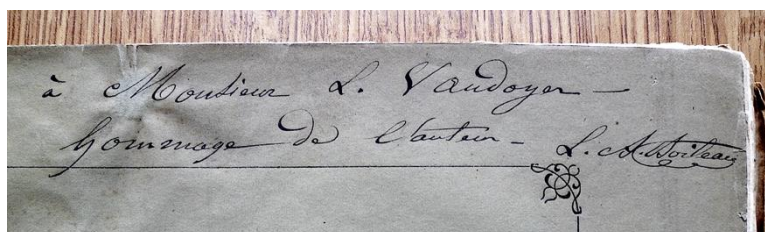 à Monsieur L. Vaudoyer —
hommage de l'auteur - L. A. Boileau